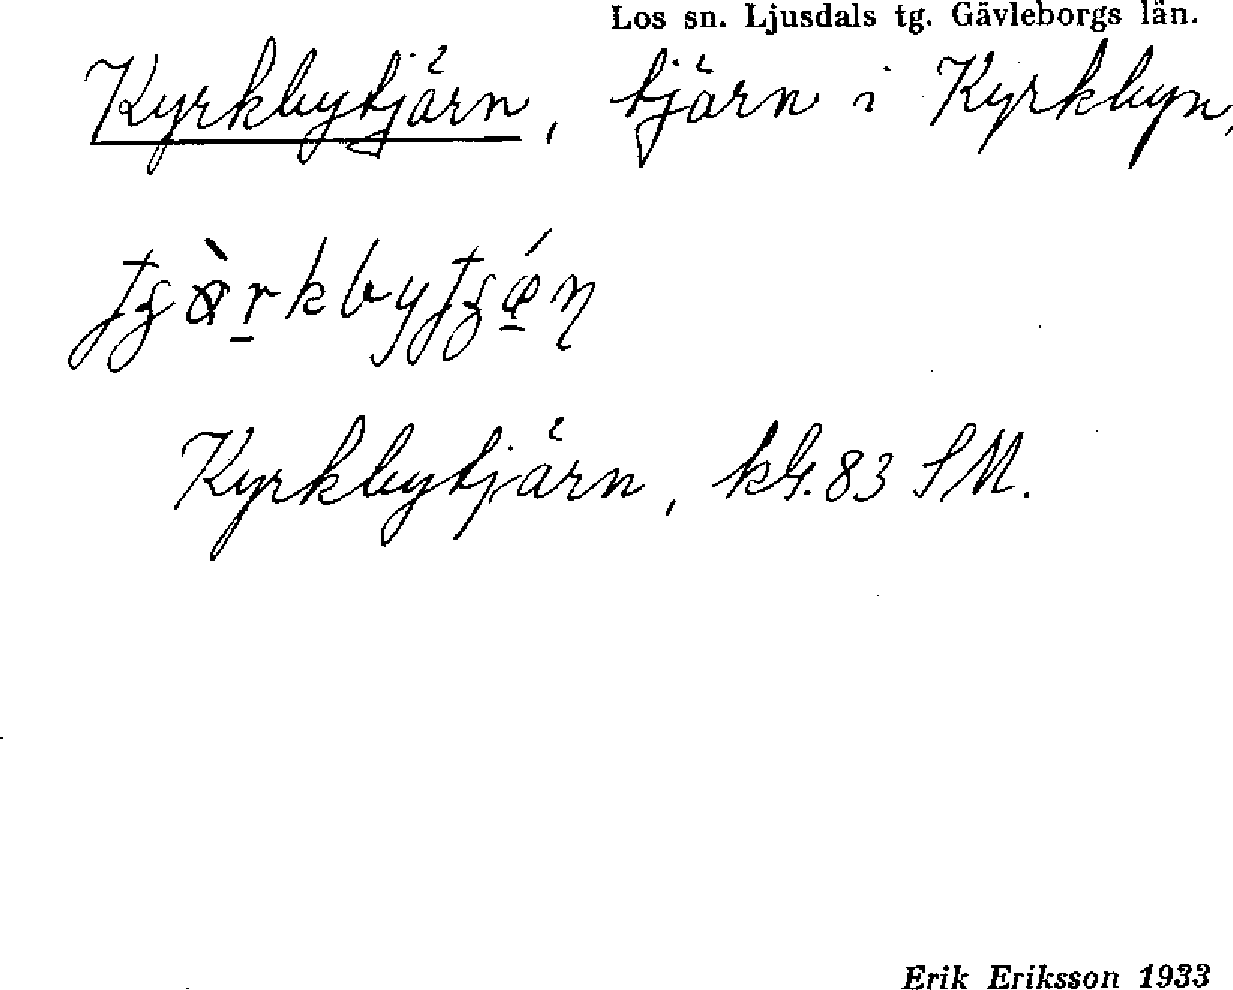 Los sn. Ljusdals tg. Gävleborgs län.
Kyrkbytjärn, tjärn i Kyrkbyn,
Kyrkbytjärn, kG. 83 SM.
Erik Eriksson 1933